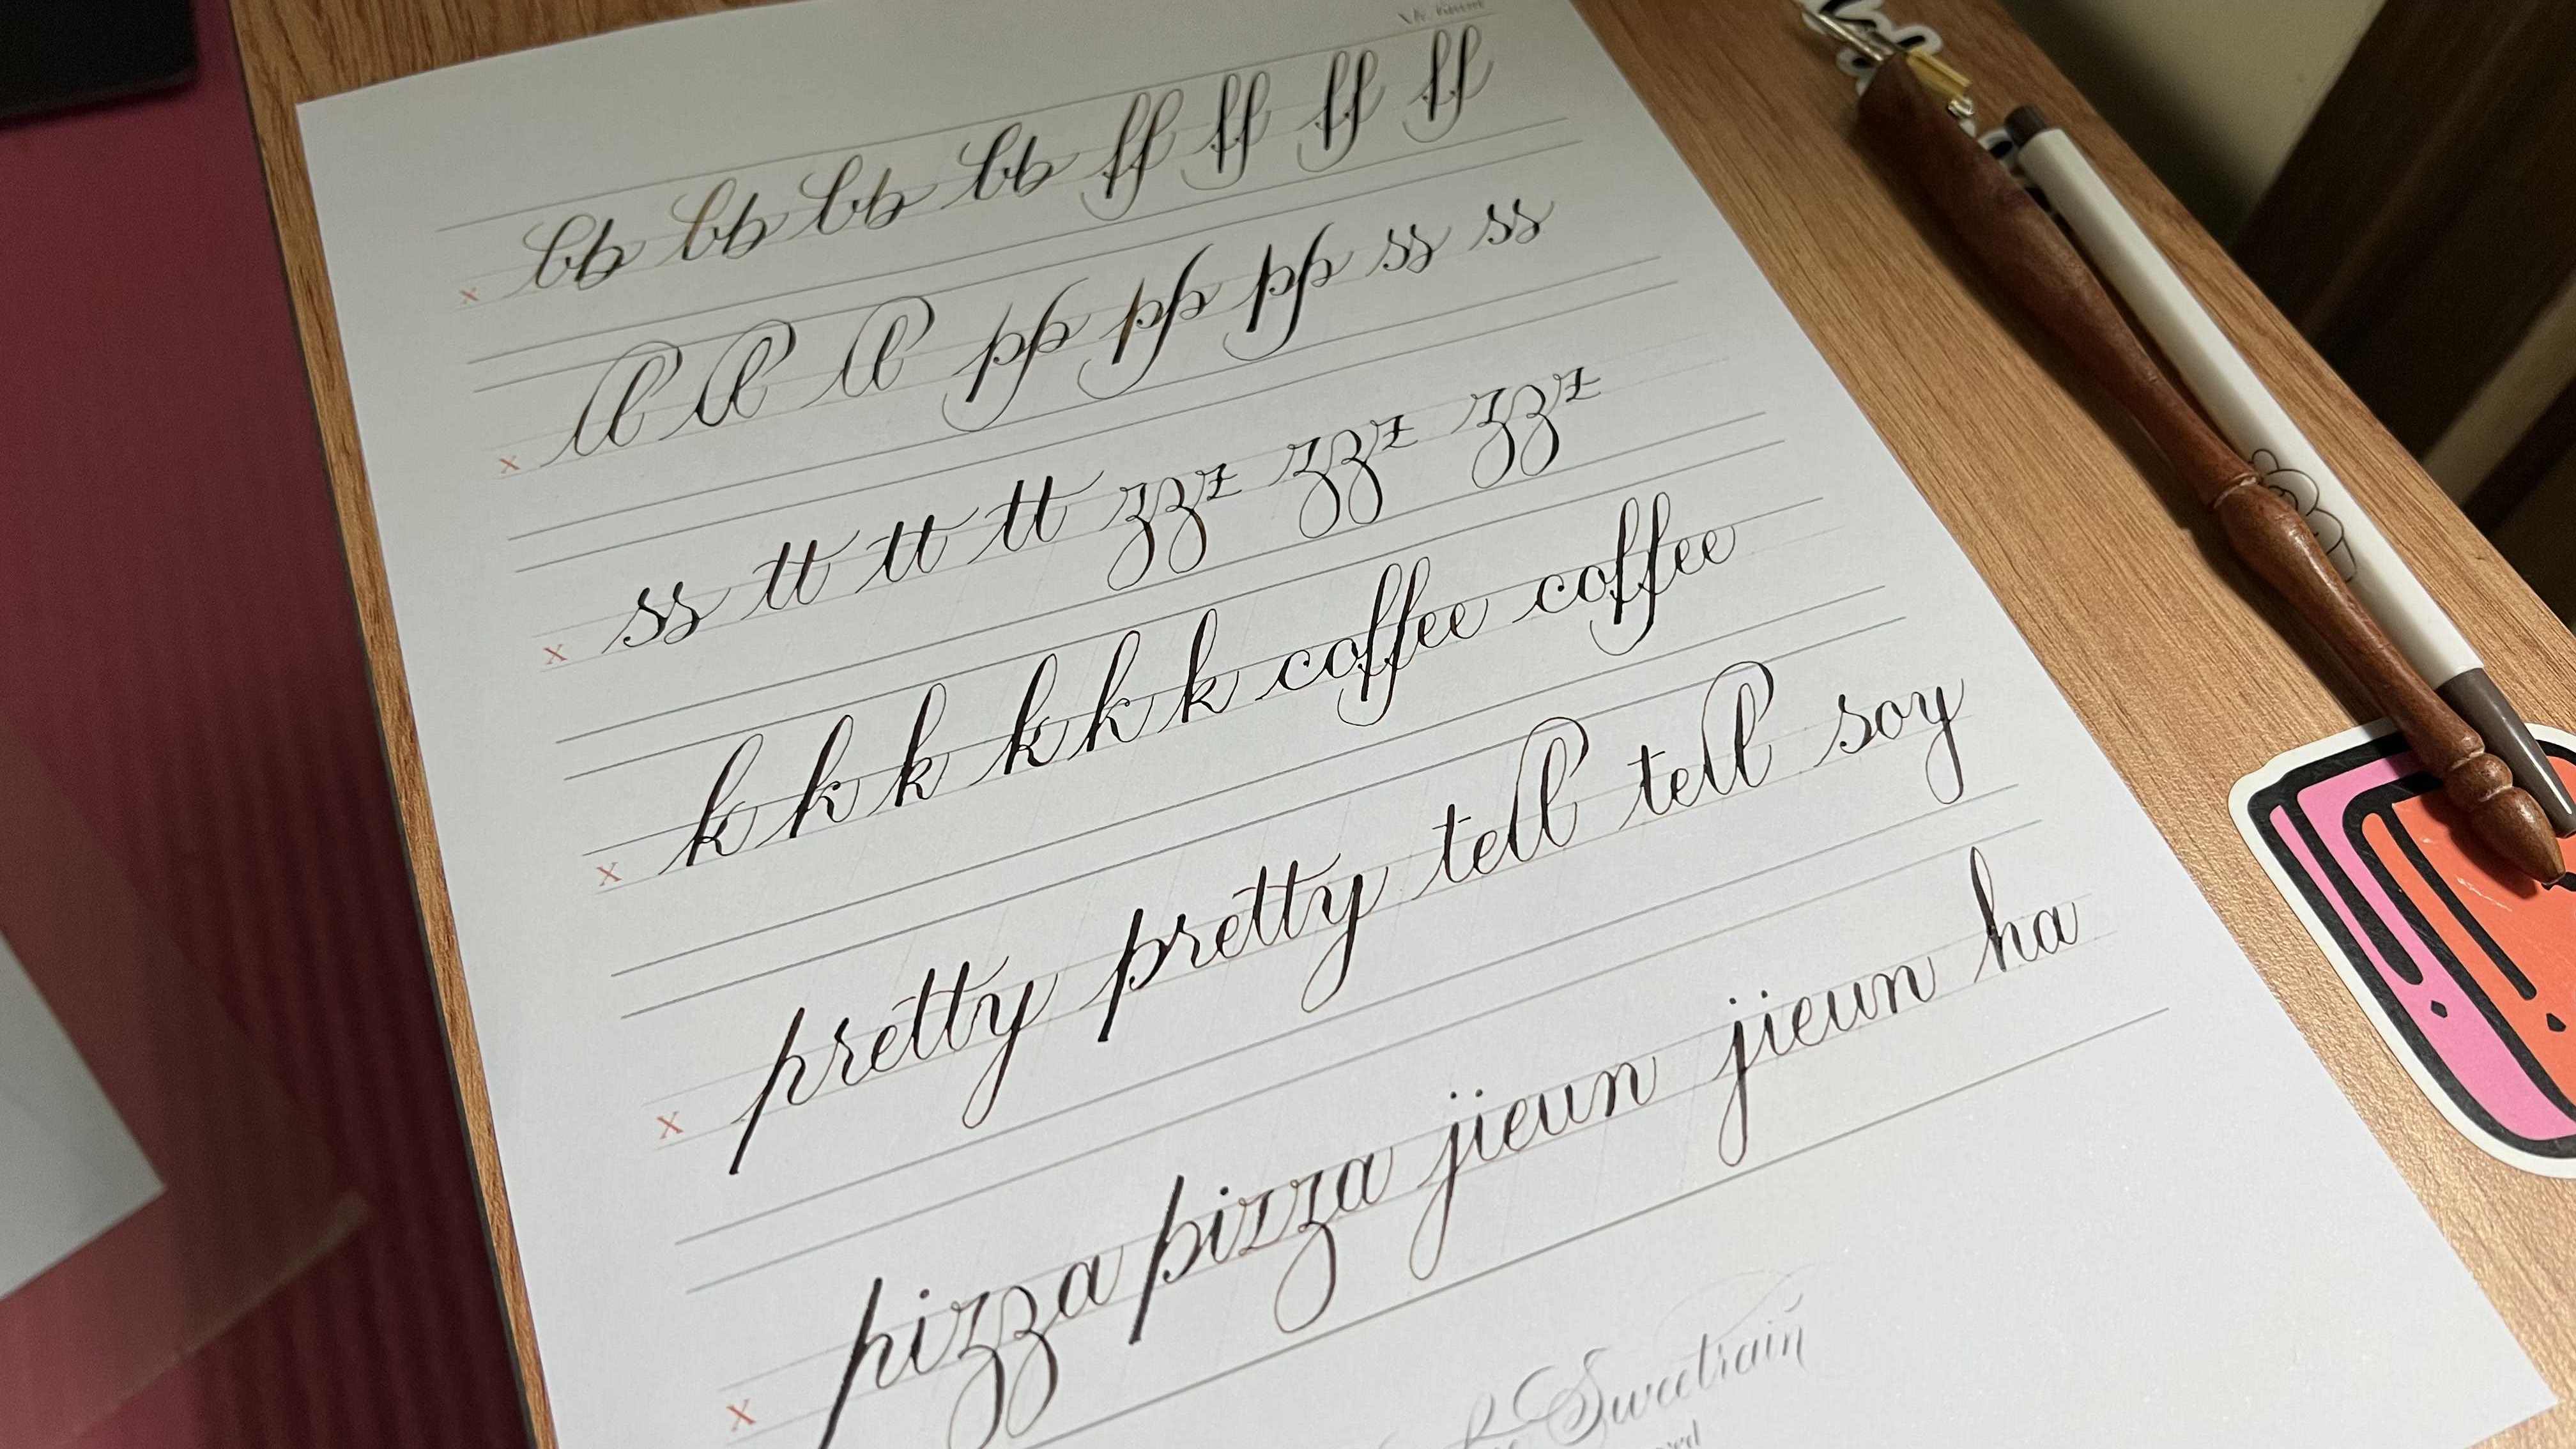 bb bb bb bb ff ff ff ff
x
ll ll ll pp pp pp ss ss
x
ss tt tt tt zzz zzz zzz
x
k k k k k k coffee coffee
x
pretty pretty tell tell soy
x
pizza pizza jieun jieun ha
x
Sweetrain